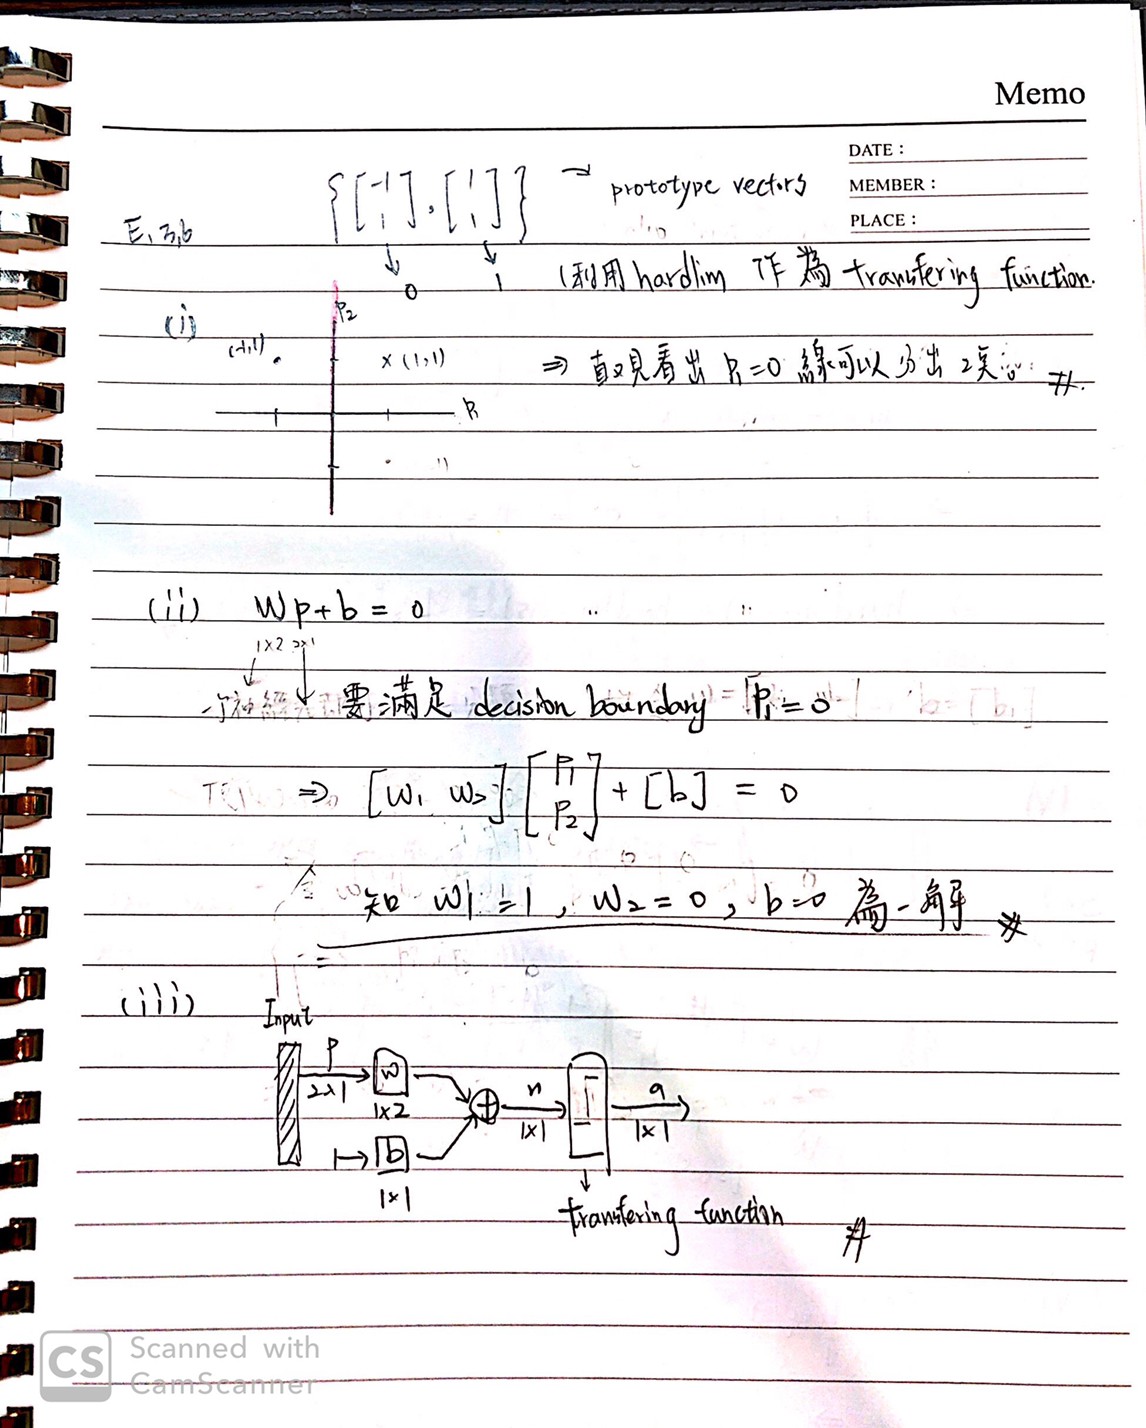 Memo
DATE :
MEMBER :
PLACE :
E. 3.6
{[-1 1], [1 1]} → prototype vectors
↓ 0 ↓ 1
(利用 hardlim 作為 transfering function.
(i)
P₂
(-1,1) . × (1,1)
P₁
⇒ 直觀看出 P₁=0 線可以分出 2 #.
(ii) Wp + b = 0
1×2 2×1
要滿足 decision boundary P₁ = 0
⇒ [w₁ w₂] [P₁ P₂] + [b] = 0
知 w1 = 1, w₂ = 0, b=0 為一解 #
(iii)
Input
P
2×1
W
1×2
b
1×1
n
1×1
a
1×1
transfering function
#
CS Scanned with
CamScanner